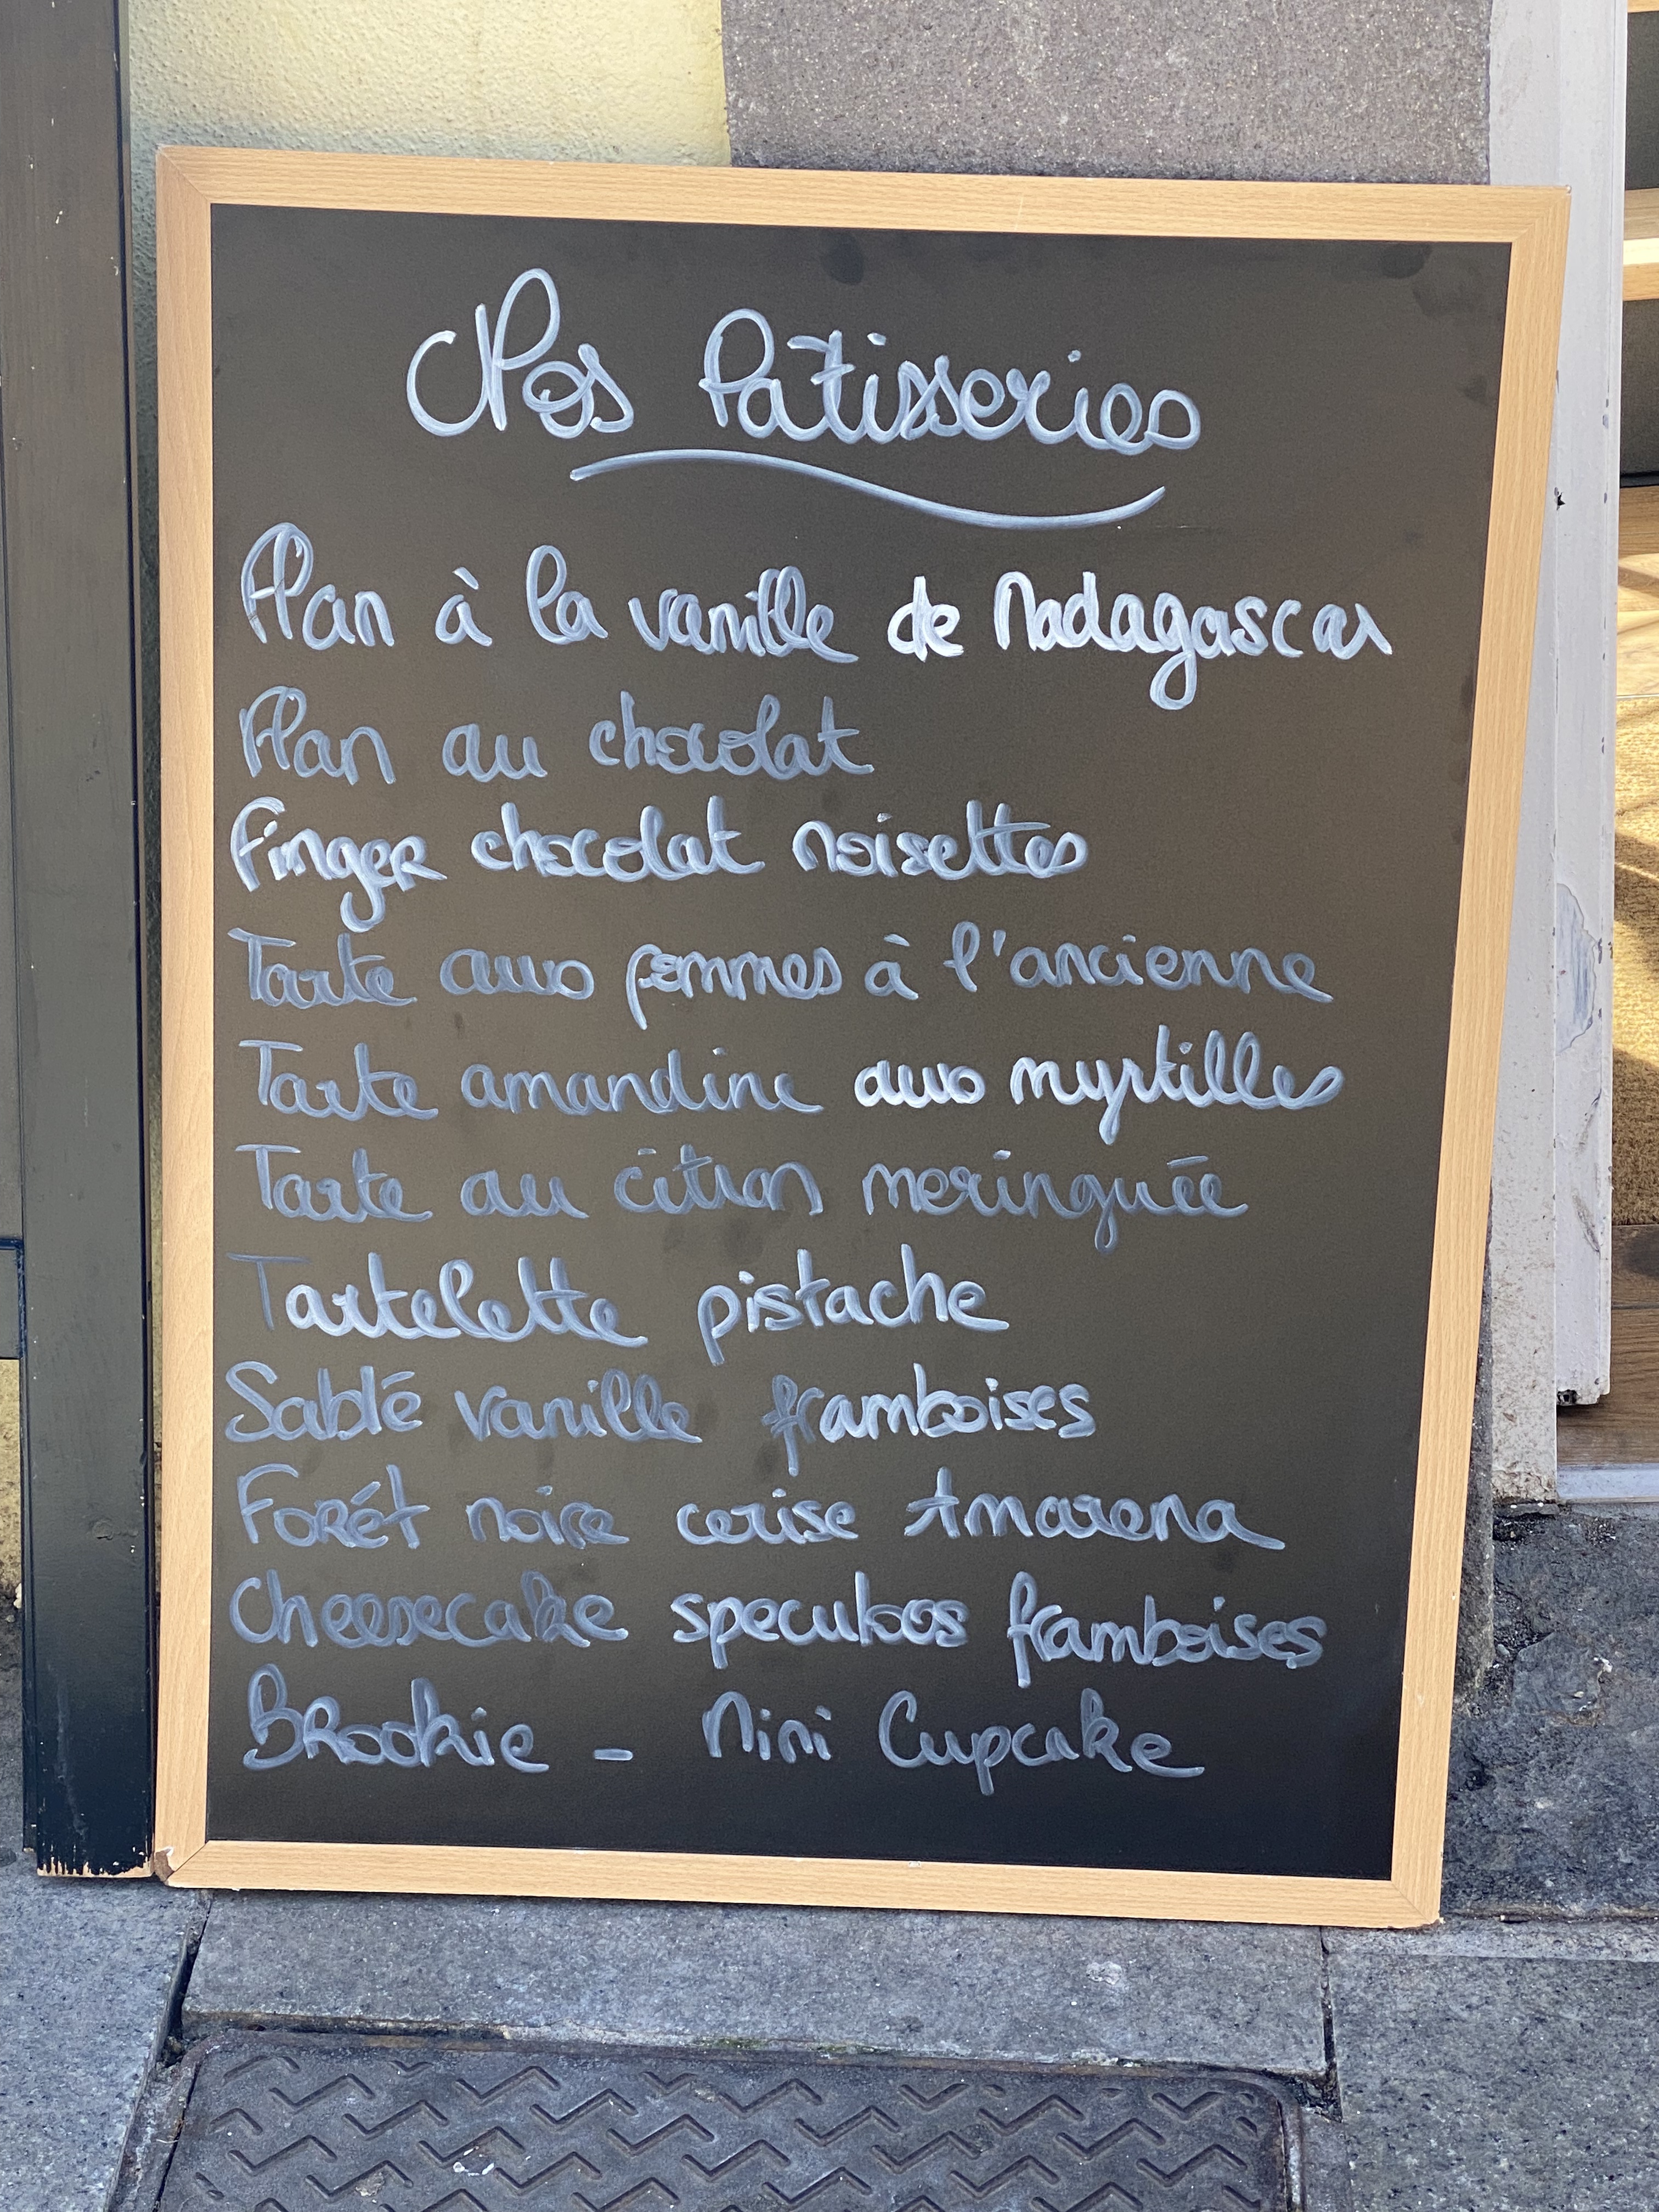 Nos Patisseries
Flan à la vanille de Madagascar
Flan au chocolat
Finger chocolat noisettes
Tarte aux pommes à l'ancienne
Tarte amandine aux myrtilles
Tarte au citron meringuée
Tartelette pistache
Sablé vanille framboises
Forêt noire cerise Amarena
Cheesecake speculoos framboises
Brookie - Mini Cupcake